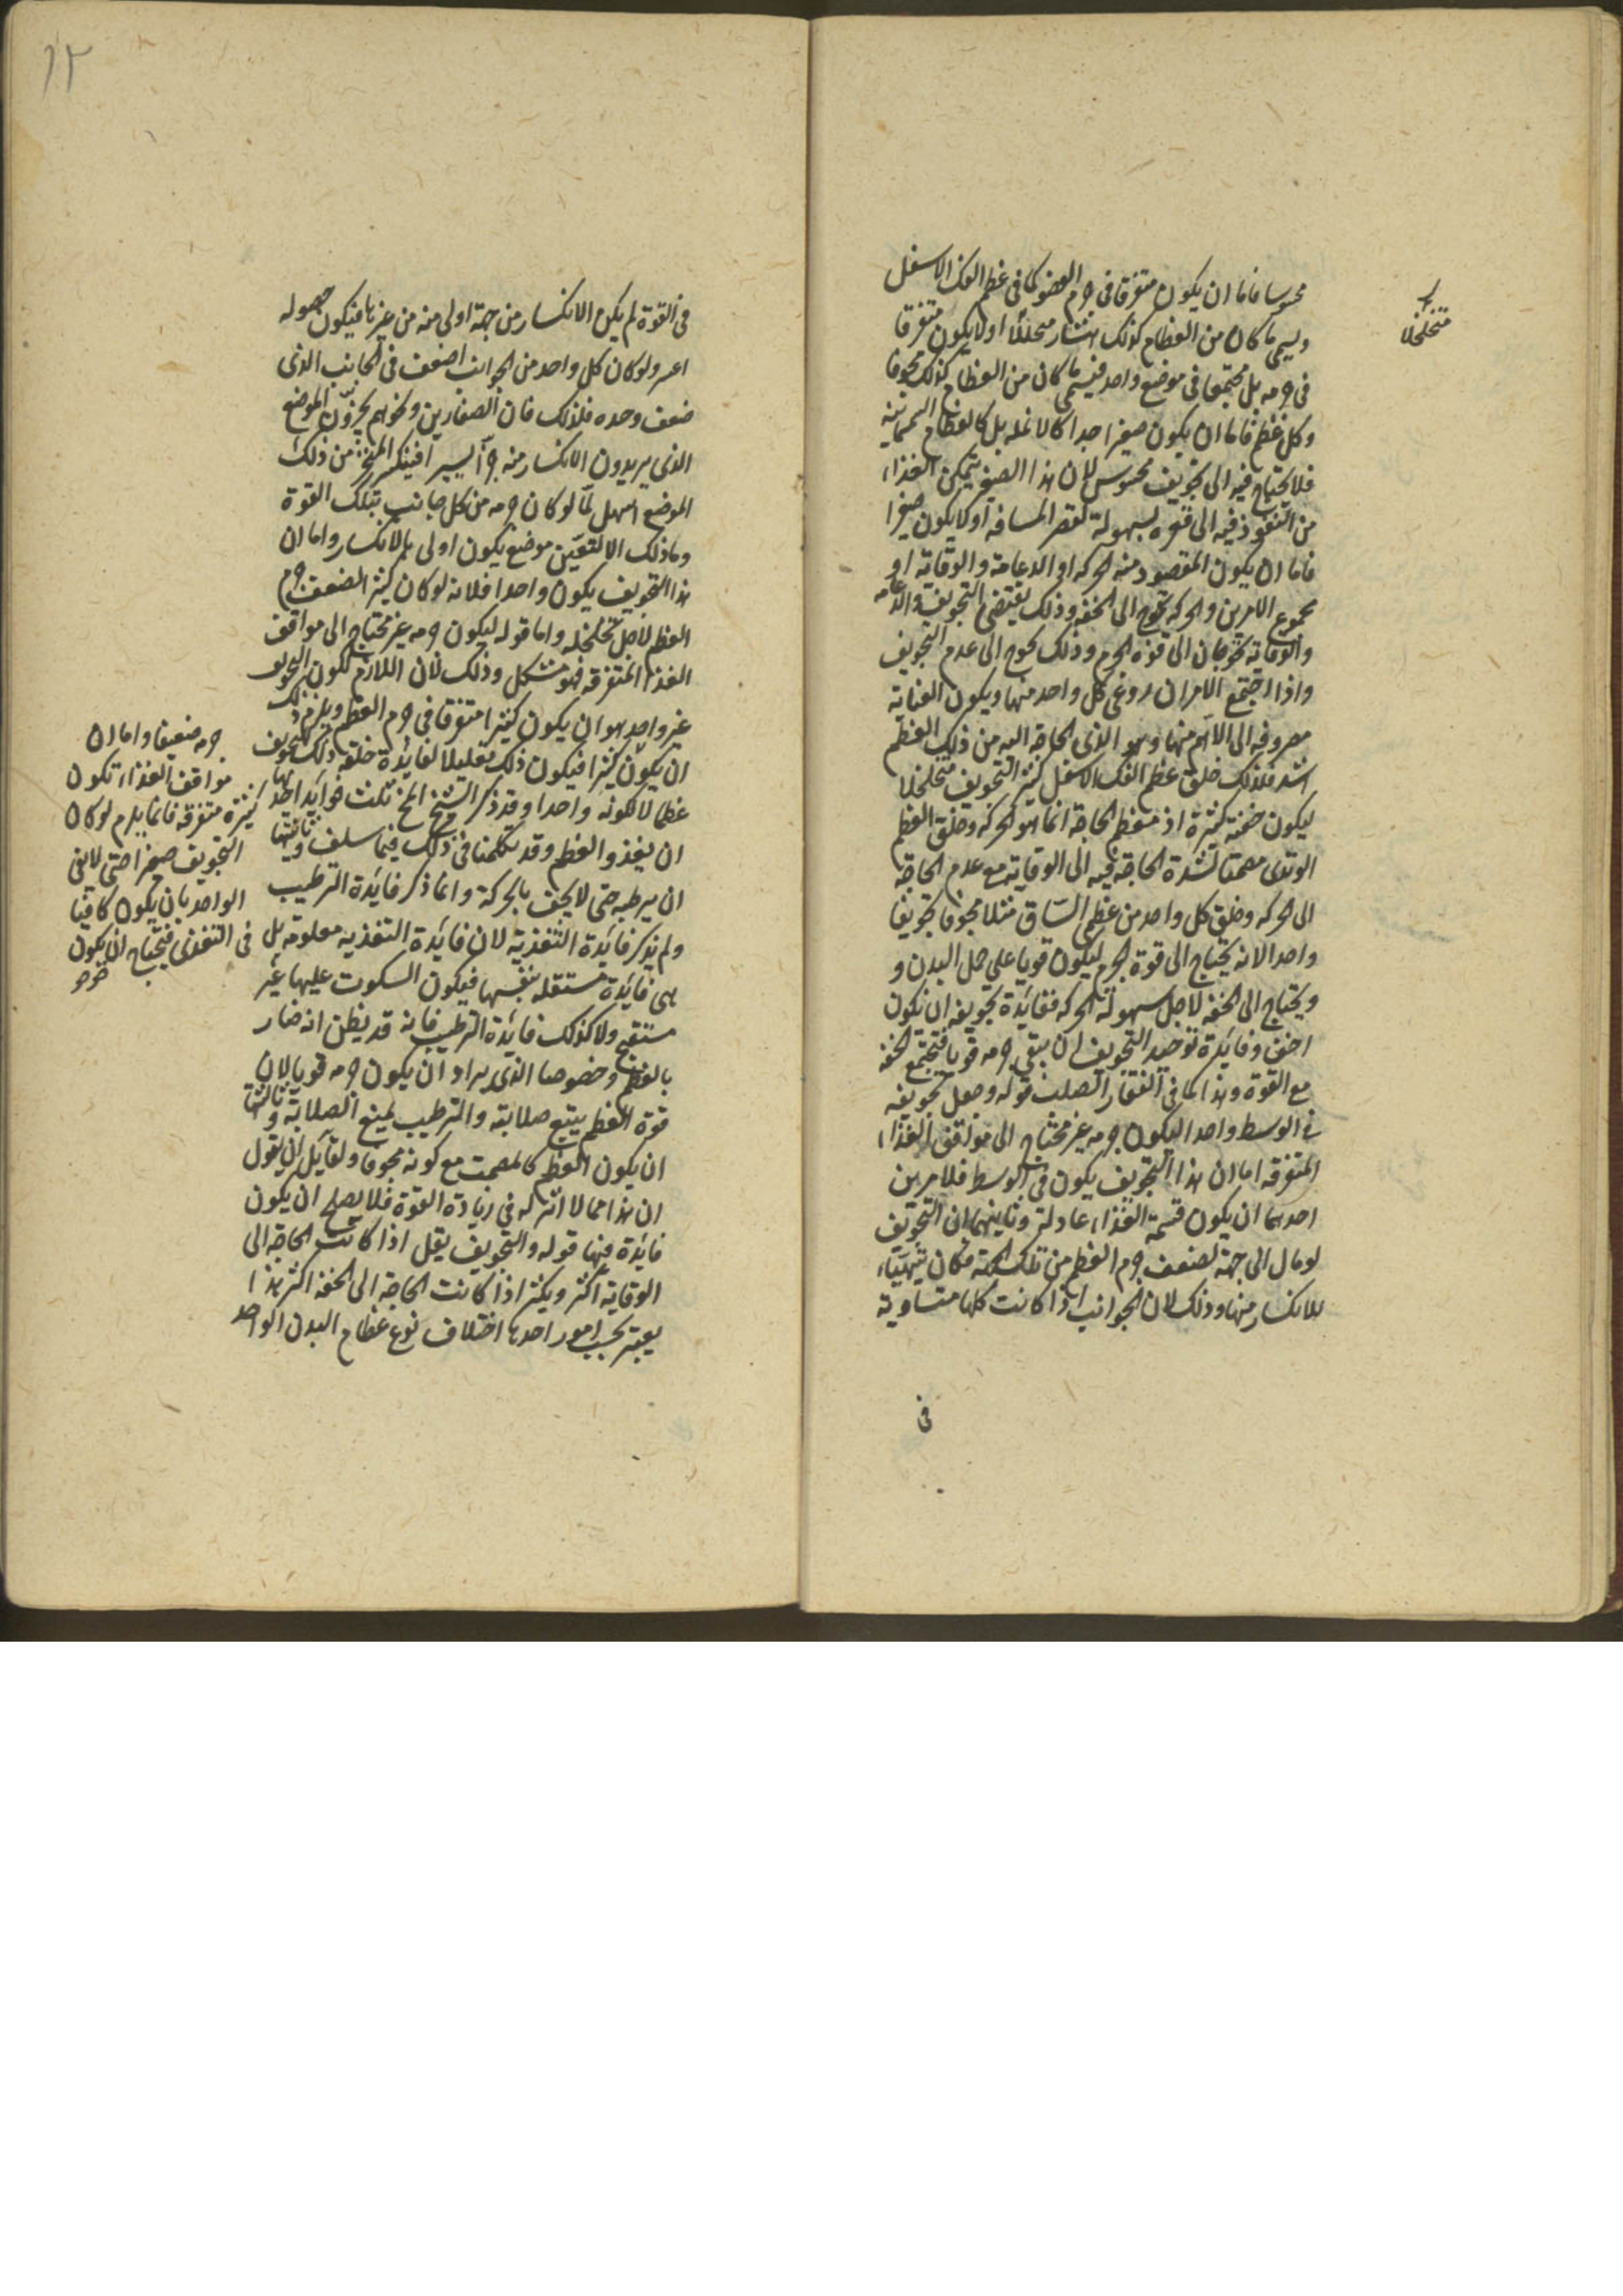 محسوسا فاما ان يكون متفرقا في جرم العضو كما في عظم الفك الاسفل
ويسمى ما كان من العظام كذلك هشا متخلخلا او لا يكون متفرقا
في جرمه بل مجتمعا في موضع واحد فيسمى ما كان من العظام كذلك مجوفا
وكل عظم فاما ان يكون صغيرا جدا كالانمله بل كالعظام السمسانيه
فلا يحتاج فيه الى تجويف محسوس لان هذا الصغير يتمكن الغذاء
من النفوذ فيه الى قعره بسهولة لقصر المسافه او لا يكون صغيرا
فاما ان يكون المقصود منه الحركه او الدعامة والوقاية او
مجموع الامرين والحركه تحوج الى الخفه وذلك يقتضى التجويف والدعامه
والوقاية تحوجان الى قوة الجرم وذلك يحوج الى عدم التجويف
واذا اجتمع الامران روعى كل واحد منهما ويكون العناية
مصروفه الى الاهم منهما وهو الذى الحاجة اليه من ذلك العظم
اشد فلذلك خلق عظم الفك الاسفل كثير التجويف متخلخلا
ليكون خفته كثيرة اذ معظم الحاجة انما هو الحركه وخلق العظم
الوتدى مصمتا لشدة الحاجة فيه الى الوقاية مع عدم الحاجة
الى الحركه وخلق كل واحد من عظمى الساق مثلا مجوفا تجويفا
واحدا لانه يحتاج الى قوة الجرم ليكون قويا على حمل البدن و
ويحتاج الى الخفه لاجل سهولة الحركه ففائدة تجويفه ان تكون
اخف وفائدة توحيد التجويف ان يبقى جرمه قويا فتجتمع الخفه
مع القوة وهذا كما في القصب قوله وجعل تجويفه
في الوسط واحدا ليكون جرمه غير محتاج الى مواقف الغذاء
المتفرقه اما ان هذا التجويف يكون في الوسط فلامرين
احدهما ان يكون قسمة الغذاء عادلة وثانيهما ان التجويف
لو مال الى جهة لضعف جرم العظم من تلك الجهة فكان يتهياء
للانكسار منها وذلك لان الجوانب اذا كانت كلها متساوية
في
متخلخلا
١٢
في القوة لم يكن الانكسار من جهة اولى منه من غيرها فيكون حصوله
اعسر ولو كان كل واحد من الجوانب اضعف في الجانب الذى
ضعف وحده فلذلك فان الصفارين ونحوهم يحزون الموضع
الذى يريدون الانكسار منه حزا يسيرا فينكسر من ذلك
الموضع اسهل مما لو كان جرمه من كل جانب بتلك القوة
وما ذلك الا لتعين موضع يكون اولى بالانكسار واما ان
هذا التجويف يكون واحدا فلانه لو كان كثيرا لضعف جرم
العظم لاجل تخلخله واما قوله ليكون جرمه غير محتاج الى مواقف
الغذا المتفرقه فهو مشكل وذلك لان اللازم لكون التجويف
غير واحد هو ان يكون كثيرا متفرقا في جرم العظم ويلزم ذلك
ان يكون كثيرا فيكون ذلك تعليلا لفائدة خلقه ذلك التجويف
عظما لا لكونه واحدا وقد ذكر الشيخ للمخ ثلث فوايد احديها
ان يغذو العظم وقد تكلمنا في ذلك فيما سلف وثانيتها
ان يرطبه حتى لا يجف بالحركة وانما ذكر فائدة الترطيب
ولم يذكر فائدة التغذية لان فائدة التغذيه معلومه بل
هى فائدة مستقله بنفسها فيكون السكوت عليها غير
مستقبح ولا كذلك فائدة الترطيب فانه قد يظن انه ضار
بالعظم وخصوصا الذى يراد ان يكون جرمه قويا لان
قوة العظم يتبع صلابته والترطيب يمنع الصلابة وثالثتها
ان يكون العظم كالمصمت مع كونه مجوفا ولقائل ان يقول
ان هذا مما لا اثر له في زيادة القوة فلا يصلح ان يكون
فائدة فيها قوله والتجويف يقل اذا كانت الحاجة الى
الوقاية اكثر ويكثر اذا كانت الحاجة الى الخفه اكثر هذا
يعتبر بحسب امور احدها اختلاف نوع عظام البدن الواحد
جرمه ضعيفا واما ان
مواقف الغذاء تكون
كثيرة متفرقه فانما يلزم لو كان
التجويف صغيرا حتى لا يفى
الواحد بان يكون كافيا
في التغذى فيحتاج ان يكون